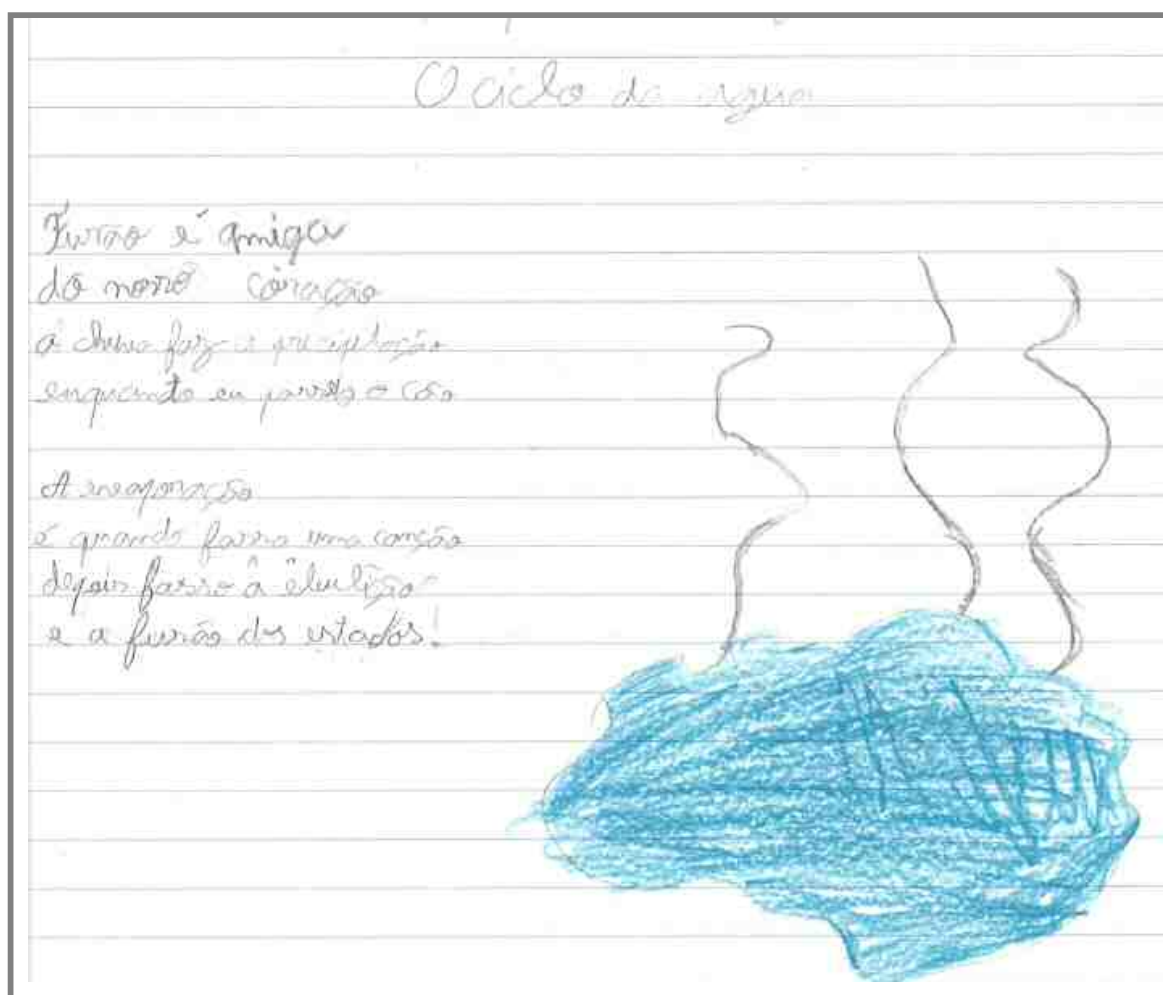 O ciclo da água
Fusão é amiga
do nosso coração
a chuva faz a precipitação
enquanto eu passeio o cão
A evaporação
é quando fasso uma canção
depois fasso a ebulição
e a fusão dos estados!